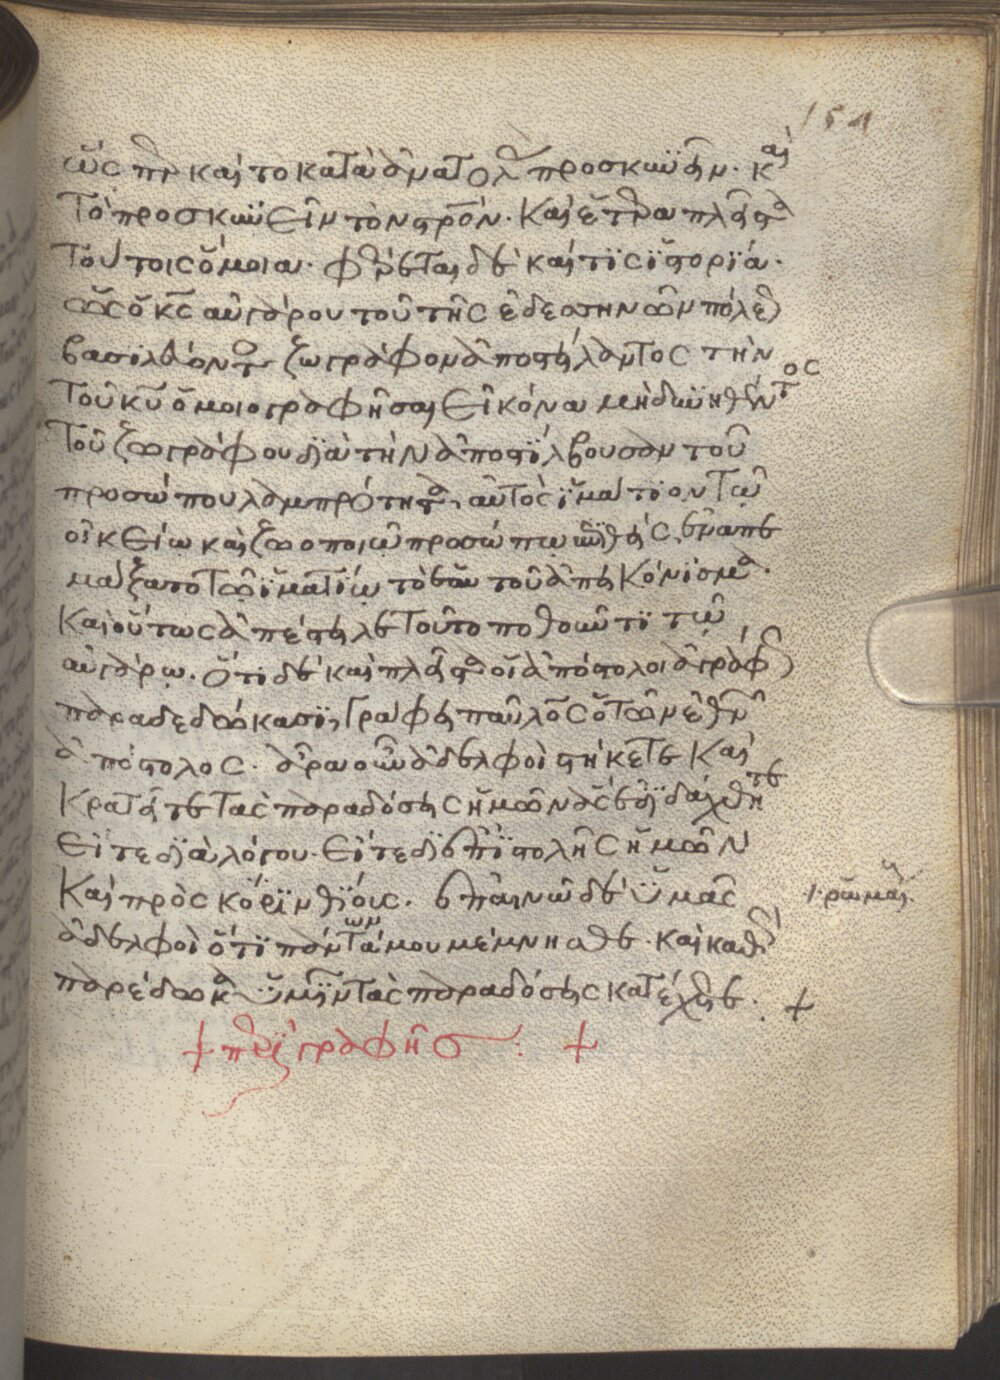 154
ὥσπερ καὶ τὸ κατὰ ἀνατολὰς προσκυνεῖν. καὶ
τὸ προσκυνεῖν τὸν σταυρόν. καὶ ἕτερα πλεῖστα
τούτοις ὅμοια. φέρεται δὲ καί τις ἱστορία.
ὡς ὁ κς αὐγάρου τοῦ τῆς ἐδεσηνῶν πόλεως
βασιλεύοντος ζωγράφον ἀποστείλαντος τὴν
τοῦ κυ ὁμοιογραφῆσαι εἰκόνα μὴ δυνηθέντος
τοῦ ζωγράφου διὰ τὴν ἀποστίλβουσαν τοῦ
προσώπου λαμπρότητα, αὐτὸς ἱμάτιον τῷ
οἰκείω καὶ ζωοποιῶ προσώπω ἐπιθεὶς, ἐναπε
μάξατο τῶ ἱματίω τὸ ἑαυτοῦ ἀπεικόνισμα.
καὶ οὕτως ἀπέστειλε τοῦτο ποθοῦντι τῷ
αὐγάρῳ. ὅτι δὲ καὶ πλεῖστα οἱ ἀπόστολοι ἀγράφως
παραδεδώκασι, γράφει παῦλος ὁ τῶν ἐθνῶν
ἀπόστολος. ἄρα οὖν ἀδελφοὶ στήκετε καὶ
κρατεῖτε τὰς παραδόσεις ἡμῶν ἃς ἐδιδάχθητε
εἴτε διὰ λόγου. εἴτε δι ἐπιστολῆς ἡμῶν
καὶ πρὸς κορινθίοις. ἐπαινῶ δὲ ὑμᾶς
ἀδελφοὶ ὅτι πάντων μου μέμνησθε. καὶ καθὼς
παρέδωκα ὑμῖν τὰς παραδόσεις κατέχετε. +
+ περὶ γραφῆς : +